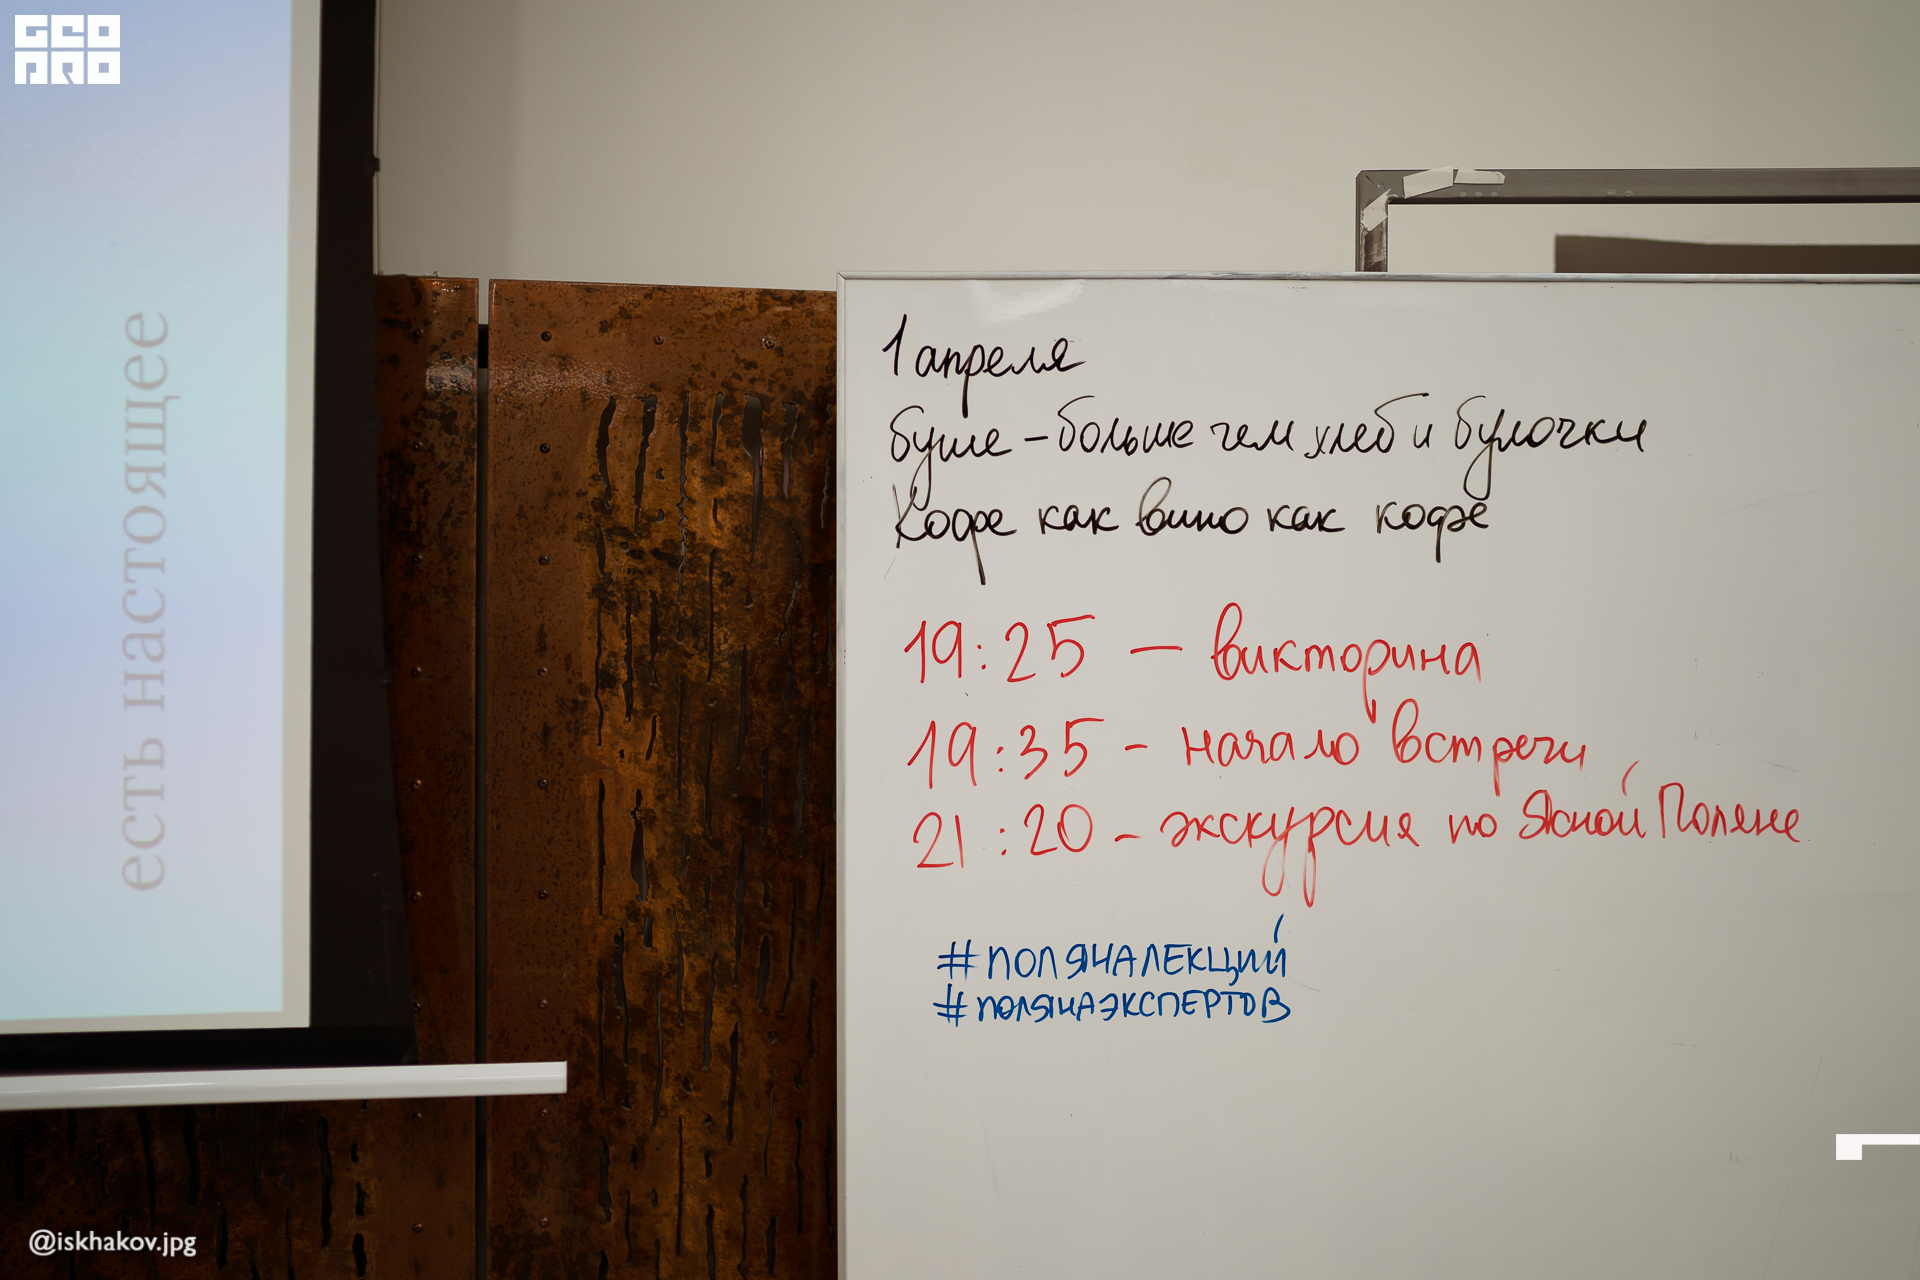 GEO
PRO
есть настоящее
1 апреля
буше – больше чем хлеб и булочки
Кофе как вино как кофе
19:25 – викторина
19:35 - начало встречи
21:20 - экскурсия по Ясной Поляне
#ПОЛЯНАЛЕКЦИЙ
#ПОЛЯНАЭКСПЕРТОВ
@iskhakov.jpg